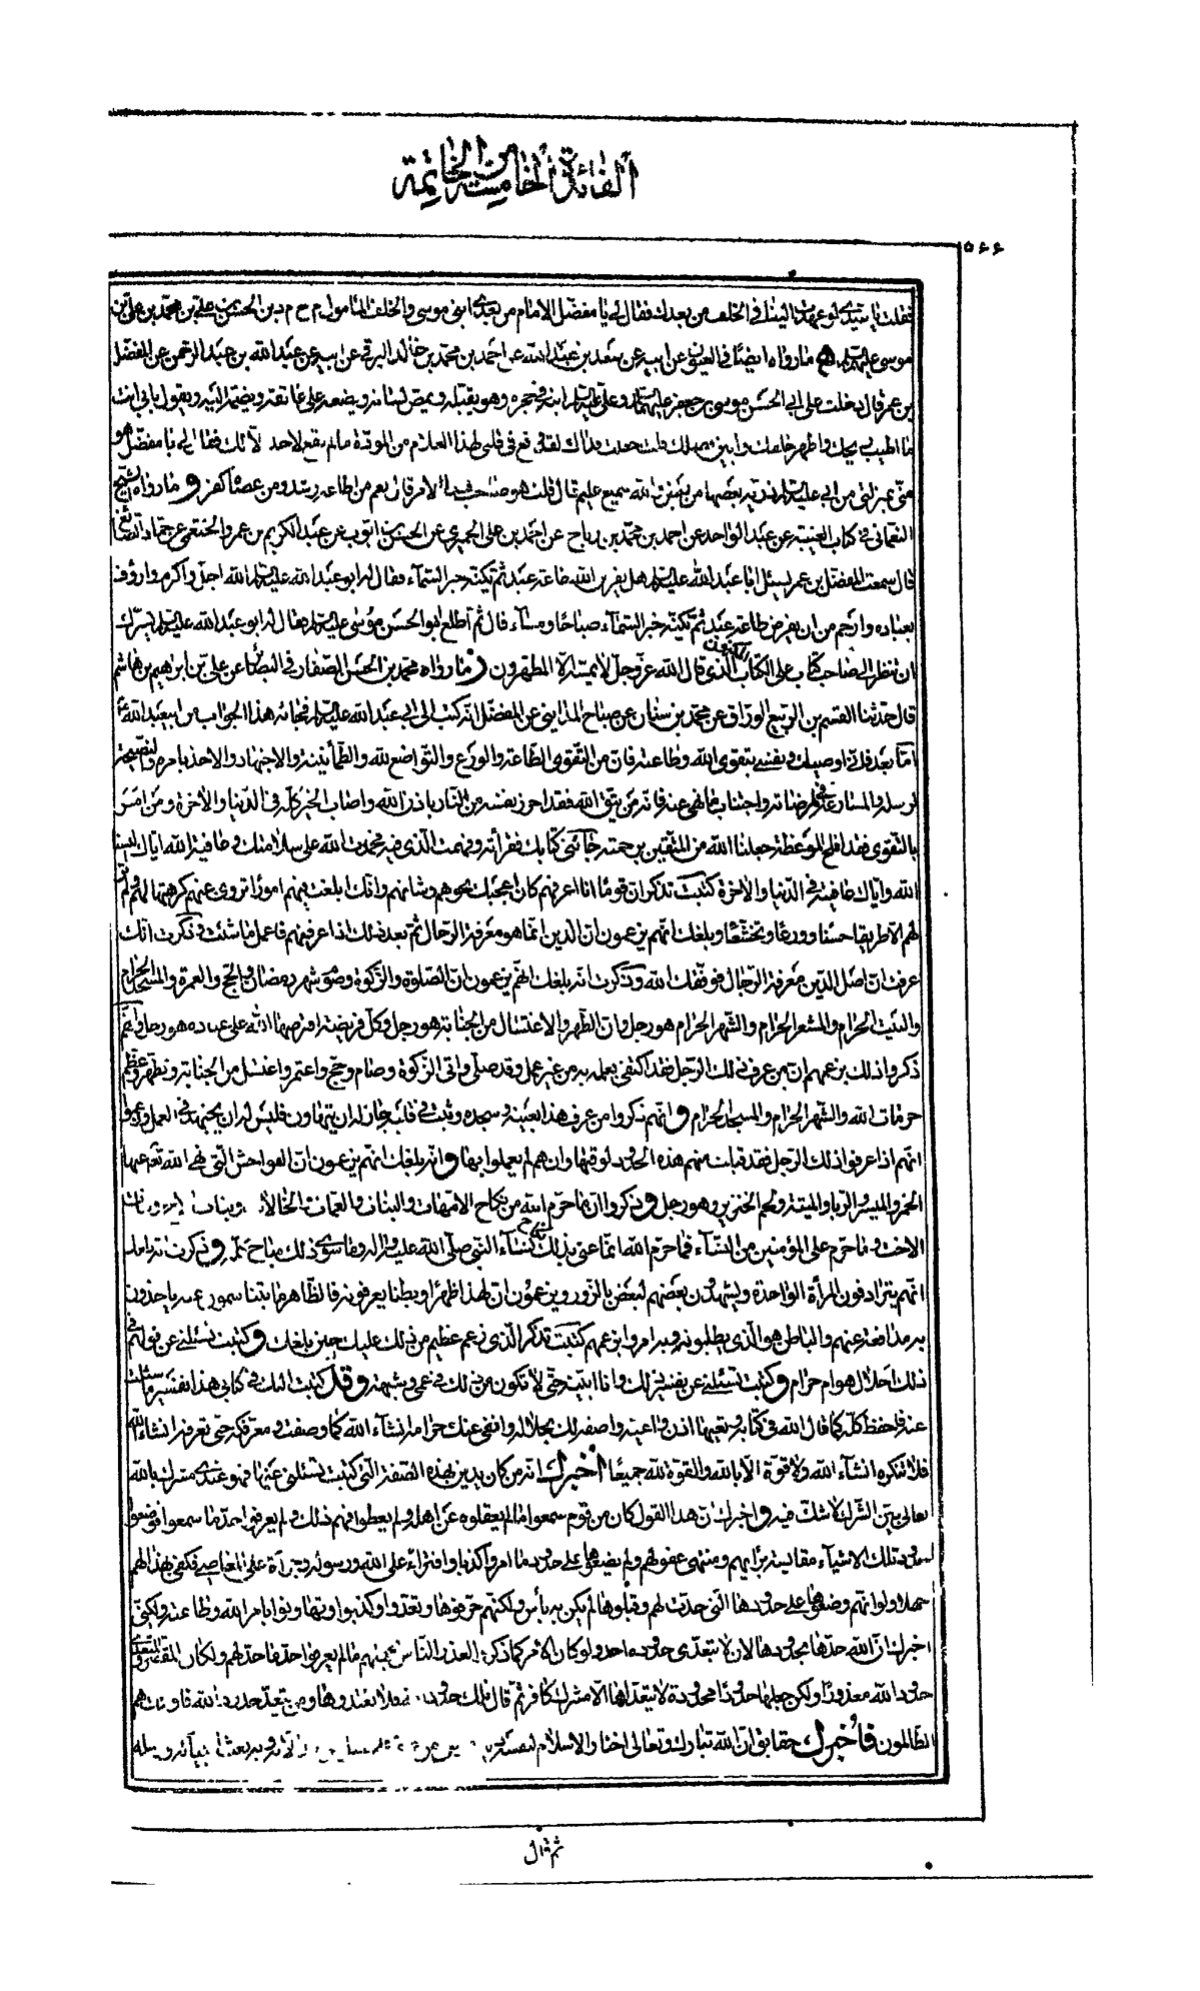 الفائدة الخامسة من الخاتمة
٥٦٦
فقلت يا سيدي لو عهدت الينا في الخلف من بعدك فقال لي يا مفضل الامام من بعدي ابني موسى والخلف المأمول م ح م د بن الحسن بن علي بن محمد بن علي بن
موسى عليهم السلام وما رواه ايضا في العيون عن ابيه عن سعد بن عبد الله عن احمد بن محمد بن خالد البرقي عن ابيه عن عبد الله بن عبد الرحمن عن المفضل
بن عمر قال دخلت على ابي الحسن موسى بن جعفر عليهما السلام وعلي عليه السلام ابنه في حجره وهو يقبله ويمص لسانه ويضعه على عاتقه ويضمه اليه ويقول بابي انت
ما اطيب ريحك واطهر خلقك وابين فضلك قلت جعلت فداك لقد وقع في قلبي لهذا الغلام من المودة ما لم يقع لاحد الا لك فقال لي يا مفضل هو
مني بمنزلتي من ابي عليه السلام ذرية بعضها من بعض والله سميع عليم قال قلت هو صاحب هذا الامر قال نعم من اطاعه رشد ومن عصاه كفر وما رواه الشيخ
النعماني في كتاب الغيبة عن عبد الواحد عن احمد بن محمد بن رباح عن احمد بن علي الحميري عن الحسن بن ايوب عن عبد الكريم بن عمرو الخثعمي عن حماد الصائغ
قال سمعت المفضل بن عمر يسئل ابا عبد الله عليه السلام هل يفرض الله طاعة عبد ثم يكنه خبر السماء فقال له ابو عبد الله عليه السلام الله اجل واكرم وارؤف
بعباده وارحم من ان يفرض طاعة عبد ثم يكنه خبر السماء صباحا ومساء قال ثم اطلع ابو الحسن موسى عليه السلام فقال له ابو عبد الله عليه السلام يسرك
ان تنظر الى صاحب كتاب علي الكتاب المكنون الذي قال الله عز وجل لا يمسه الا المطهرون وما رواه محمد بن الحسن الصفار في البصائر عن علي بن ابراهيم بن هاشم
قال حدثنا القسم بن الربيع الوراق عن محمد بن سنان عن صباح المدايني عن المفضل انه كتب الى ابي عبد الله عليه السلام فجائه هذا الجواب من ابي عبد الله ع
اما بعد فاني اوصيك ونفسي بتقوى الله وطاعته فان من التقوى الطاعة والورع والتواضع لله والطمأنينة والاجتهاد والاخذ بامره والنصيحة
لرسله والمسارعة في مرضاته واجتناب ما نهى عنه فانه من يتق الله فقد احرز نفسه من النار باذن الله واصاب الخير كله في الدنيا والاخرة ومن امر
بالتقوى فقد افلح الموعظة جعلنا الله من المتقين برحمته جائني كتابك فقرأته وفهمت الذي فيه فحمدت الله على سلامتك وعافية الله اياك البسنا
الله واياك عافيته في الدنيا والاخرة كتبت تذكر ان قوما انا اعرفهم كان اعجبك نحوهم وشانهم وانك ابلغت عنهم امورا تروى عنهم كرهتها لهم ولم تر
لهم الا طريقا حسنا وورعا وتخشعا وبلغك انهم يزعمون ان الدين انما هو معرفة الرجال ثم بعد ذلك اذا عرفتهم فاعمل ما شئت وذكرت انك
عرفت ان اصل الدين معرفة الرجال فوفقك الله وذكرت انه بلغك انهم يزعمون ان الصلوة والزكوة وصوم شهر رمضان والحج والعمرة والمسجد الحرام
والبيت الحرام والمشعر الحرام والشهر الحرام هو رجل وان الطهر والاغتسال من الجنابة هو رجل وكل فريضة افترضها الله على عباده هو رجل وانهم
ذكروا ذلك بزعمهم ان من عرف ذلك الرجل فقد اكتفى بعلمه به من غير عمل وقد صلى واتى الزكوة وصام وحج واعتمر واغتسل من الجنابة وتطهر وعظم
حرمات الله والشهر الحرام والمسجد الحرام وانهم ذكروا من عرف هذا بعينه وبحده وثبت في قلبه جاز له ان يتهاون فليس له ان يجتهد في العمل وزعموا
انهم اذا عرفوا ذلك الرجل فقد قبلت منهم هذه الحدود لوقتها وان هم لم يعملوا بها وانه بلغك انهم يزعمون ان الفواحش التي نهى الله تعالى عنها
الخمر والميسر والربا والميتة ولحم الخنزير هو رجل وذكروا ان ما حرم الله من نكاح الامهات والبنات والعمات والخالات وبنات الاخ وبنات
الاخت وما حرم على المؤمنين من النساء فما حرم الله انما عنى بذلك نكاح نساء النبي صلى الله عليه واله وما سوى ذلك مباح كله وذكرت انه بلغك
انهم يترادفون المرأة الواحدة ويشهدون بعضهم لبعض بالزور ويزعمون ان لهذا ظهرا وبطنا يعرفونه فالظاهر ما يتناهون عنه ياخذون
به مدافعة عنهم والباطن هو الذي يطلبون وبه امروا بزعمهم كتبت تذكر الذي زعم عظيم من ذلك عليك حين بلغك وكتبت تسئلني عن قولهم في
ذلك احلال هو ام حرام وكتبت تسئلني عن تفسير ذلك وانا ابينه حتى لا تكون من ذلك في عمى وشبهة وقد كتبت اليك في كتابي هذا تفسير ما سئلت
عنه فاحفظ كله كما قال الله في كتابه وتعيها اذن واعية واصفه لك بحلاله وانفي عنك حرامه انشاء الله كما وصفت ومعرفكه حتى تعرفه انشاء الله
فلا تنكره انشاء الله ولا قوة الا بالله والقوة لله جميعا اخبرك انه من كان يدين بهذه الصفة التي كتبت تسئلني عنها فهو عندي مشرك بالله
تعالى بين الشرك لا شك فيه واخبرك ان هذا القول كان من قوم سمعوا ما لم يعقلوه عن اهله ولم يعطوا فهم ذلك ولم يعرفوا حد ما سمعوا فوضعوا
حدود تلك الاشياء مقايسة برأيهم ومنتهى عقولهم ولم يضعوها على حدود ما امروا كذبا وافتراء على الله ورسوله وجرأة على المعاصي فكفى بهذا لهم
جهلا ولو انهم وضعوها على حدودها التي حدت لهم وقبلوها لم يكن به بأس ولكنهم حرفوها وتعدوا وكذبوا وتهاونوا بامر الله وطاعته ولكني
اخبرك ان الله حدها بحدودها لان لا يتعدى حدوده احد ولو كان الامر كما ذكروا لعذر الناس بجهلهم ما لم يعرفوا حد ما حد لهم ولكان المقصر والمتعدي
حدود الله معذورا ولكن جعلها حدودا محدودة لا يتعداها الا مشرك كافر ثم قال تلك حدود الله فلا تعتدوها ومن يتعد حدود الله فاولئك هم
الظالمون فاخبرك حقايق ان الله تبارك وتعالى اختار الاسلام لنفسه وبعث انبيائه ورسله
ثم قال